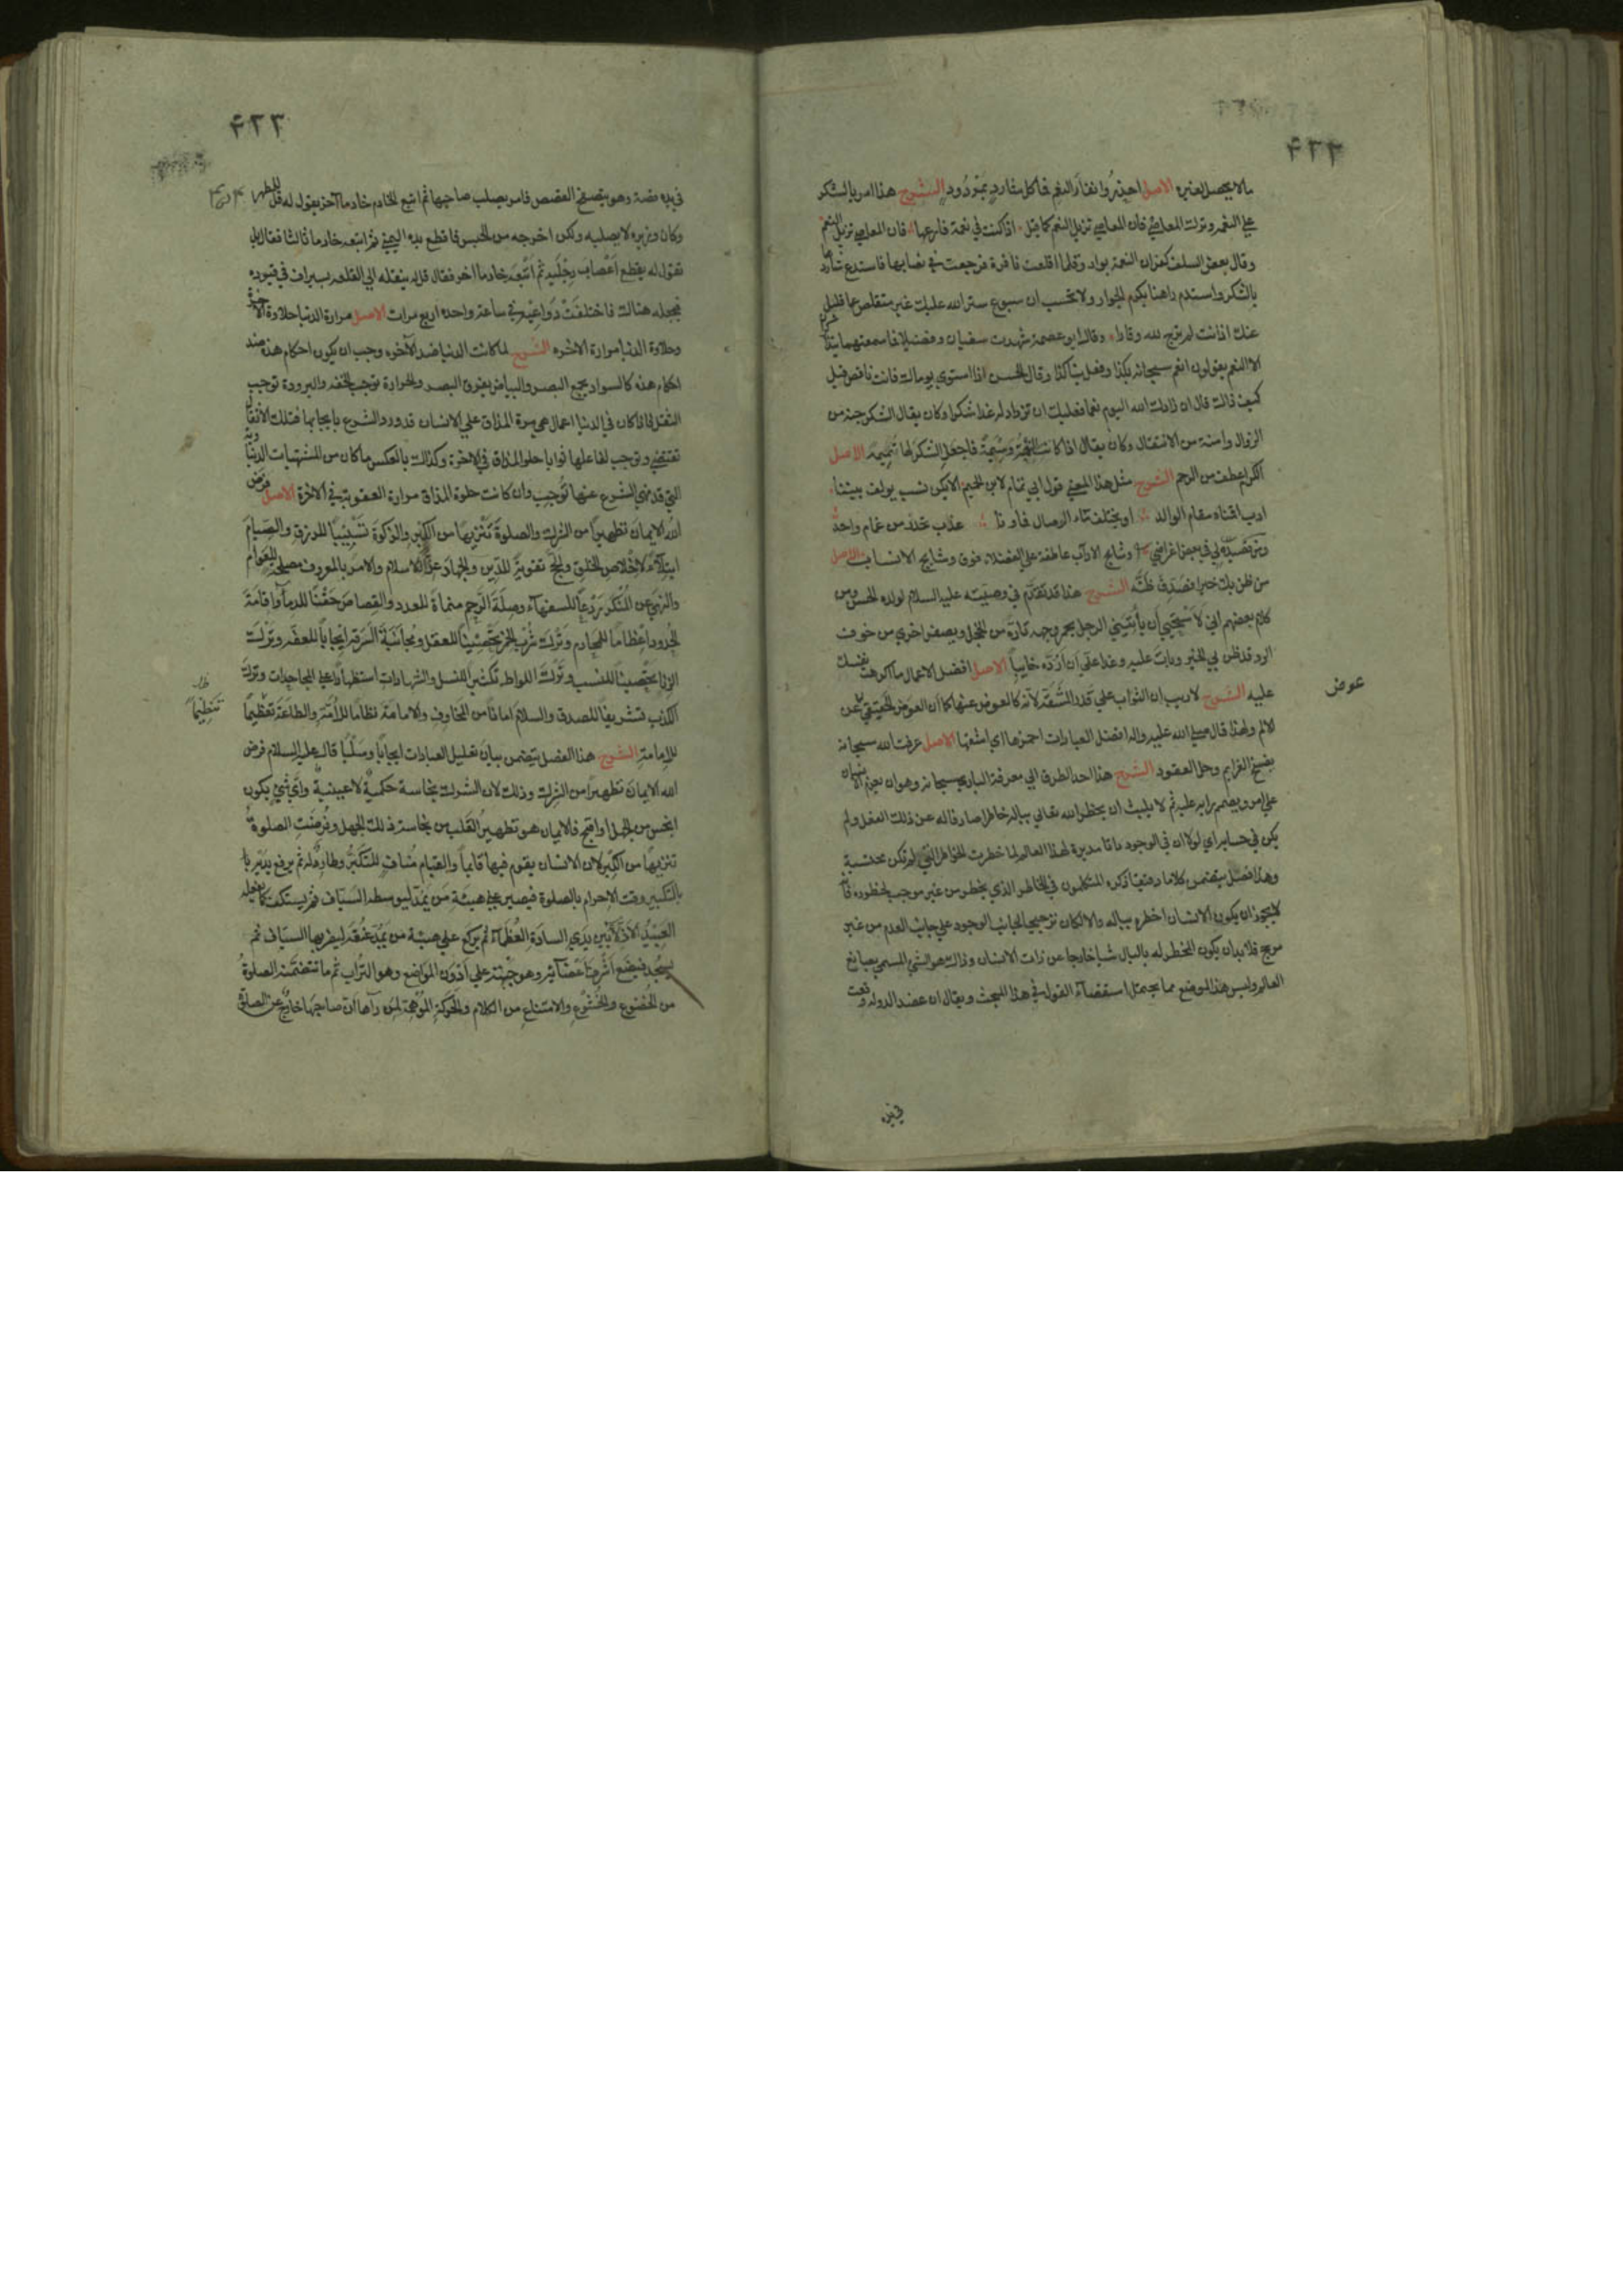 ۴۳۳
ما لا يحصل لغيره الاصل احذروا نفار النعم فما كل شارد بمردود الشرح هذا امر بالشكر
على النعمة وترك المعاصي فان المعاصي تزيل النعم كما قيل اذا كنت في نعمة فارعها فان المعاصي تزيل النعم
وقال بعض السلف كفران النعمة بوار وقلما اقلعت نافرة فرجعت في نصابها فاستدع شاردها
بالشكر واستدم راهنها بكرم الجوار ولا تحسب ان سبوغ ستر الله عليك غير متقلص عما قليل
عنك اذا انت لم ترج لله وقارا وقال ابو عصمة شهدت سفيان وفضيلا فما سمعتهما يتذاكران
الا النعم يقولون انعم سبحانه بكذا وفعل بنا كذا وقال الحسن اذا استوى يوماك فانت ناقص قيل
كيف ذاك قال ان زادك الله اليوم نعما فعليك ان تزداد له غدا شكرا وكان يقال الشكر جنة من
الزوال وامنة من الانتقال وكان يقال اذا كانت النعمة وسيمة فاجعل الشكر لها تميمة الاصل
الكرم اعطف من الرحم الشرح مثل هذا المعنى قول ابي تمام لابن الجهم الا يكن نسب يولف بيننا
ادب اقمناه مقام الوالد او يختلف ماء الوصال فماونا عذب تحدر من غمام واحد
ومن قصيدة لي في بعض اغراضي وشايج الاداب عاطفة على الفضلاء فوق وشايج الانساب الاصل
من ظن بك خيرا فصدق ظنه الشرح هذا قد تقدم في وصيته عليه السلام لولده الحسن ومن
كلام بعضهم اني لاستحيي ان يأتيني الرجل يحمر وجهه تارة من الخجل ويصفر اخرى من خوف
الرد قد ظن بي الخير وبات عليه وغدا علي ان ارده خايبا الاصل افضل الاعمال ما اكرهت نفسك
عليه الشرح لا ريب ان الثواب على قدر المشقة لانه كالعوض عنها كما ان العوض الحقيقي عوض عن
الالم ولهذا قال صلى الله عليه واله افضل العبادات احمزها اي اشقها الاصل عرفت الله سبحانه
بفسخ العزايم وحل العقود الشرح هذا احد الطرق الى معرفة الباري سبحانه وهو ان يعزم الانسان
على امر ويصمم رايه عليه ثم لا يلبث ان يخطر الله تعالى بباله خاطرا صارفا له عن ذلك الفعل ولم
يكن في حسابه اي لولا ان في الوجود ذاتا مدبرة لهذا العالم لما خطرت الخواطر التي لم تكن محتسبة
وهذا فصل يتضمن كلاما دقيقا ذكره المتكلمون في الخاطر الذي يخطر من غير موجب لخطوره فانه
لا يجوز ان يكون الانسان اخطره بباله والا لكان ترجيحا لجانب الوجود على جانب العدم من غير
مرجح فلا بد ان يكون المخطر له بالبال شيئا خارجا عن ذات الانسان وذاك هو الشي المسمى بصانع
العالم وليس هذا الموضع مما يحتمل استقصاء القول في هذا المبحث ويقال ان عضد الدولة وقعت
عوض
في يده
۴۳۳
في يده قصة وهو يتصفح القصص فامر بصلب صاحبها ثم اتبع الخادم خادما آخر يقول له قل للمطهر
وكان وزيره لا يصلبه ولكن اخرجه من الحبس فاقطع يده اليمنى ثم اتبعه خادما ثالثا فقال بل
تقول له يقطع اعصاب رجليه ثم اتبعه خادما اخر فقال قل له ينقله الى القلعة بسيراف في قيوده
فيجعله هناك فاختلفت دواعيه في ساعة واحدة اربع مرات الاصل مرارة الدنيا حلاوة الآخرة
وحلاوة الدنيا مرارة الاخرة الشرح لما كانت الدنيا ضد الآخرة وجب ان يكون احكام هذه ضد
احكام هذه كالسواد يجمع البصر والبياض يفرق البصر والحرارة توجب الخفة والبرودة توجب
الثقل فاذا كان في الدنيا اعمال هي مرة المذاق على الانسان قد ورد الشرع بايجابها فتلك الافعال
تقتضي وتوجب لفاعلها ثوابا حلو المذاق في الاخرة وكذلك بالعكس ما كان من المشتهيات الدنياوية
التي قد نهى الشرع عنها توجب وان كانت حلوة المذاق مرارة العقوبة في الاخرة الاصل فرض
الله الايمان تطهيرا من الشرك والصلوة تنزيها من الكبر والزكوة تسبيبا للرزق والصيام
ابتلاء لاخلاص الخلق والحج تقوية للدين والجهاد عزا للاسلام والامر بالمعروف مصلحة للعوام
والنهي عن المنكر ردعا للسفهاء وصلة الرحم منماة للعدد والقصاص حقنا للدماء واقامة
الحدود اعظاما للمحارم وترك شرب الخمر تحصينا للعقل ومجانبة السرقة ايجابا للعفة وترك
الزنا تحصينا للنسب وترك اللواط تكثيرا للنسل والشهادات استظهارا على المجاحدات وترك
الكذب تشريفا للصدق والسلام امانا من المخاوف والامامة نظاما للامة والطاعة تعظيما
للامامة الشرح هذا الفصل يتضمن بيان تعليل العبادات ايجابا وسلبا قال عليه السلام فرض
الله الايمان تطهيرا من الشرك وذلك لان الشرك نجاسة حكمية لا عينية واي شي يكون
انجس من الجهل او اقبح فالايمان هو تطهير القلب من نجاسة ذلك الجهل وفرضت الصلوة
تنزيها من الكبر لان الانسان يقوم فيها قايما والقيام مناف للتكبر وطارد له ثم يرفع يديه
بالتكبير وقت الاحرام بالصلوة فيصير على هيئة من يمد عنقه ليوسطه السياف ثم يستكتف كما يفعله
العبيد الاذلاء بين يدي السادة العظماء ثم يركع على هيئة من يمد عنقه ليضربها السياف ثم
يسجد فيضع اشرف اعضائه وهو جبهته على ادون المواضع وهو التراب ثم ما تتضمنه الصلوة
من الخضوع والخشوع والامتناع من الكلام والحركة الموهمة لمن رآها ان صاحبها خارج عن الصلوة
تعظيما